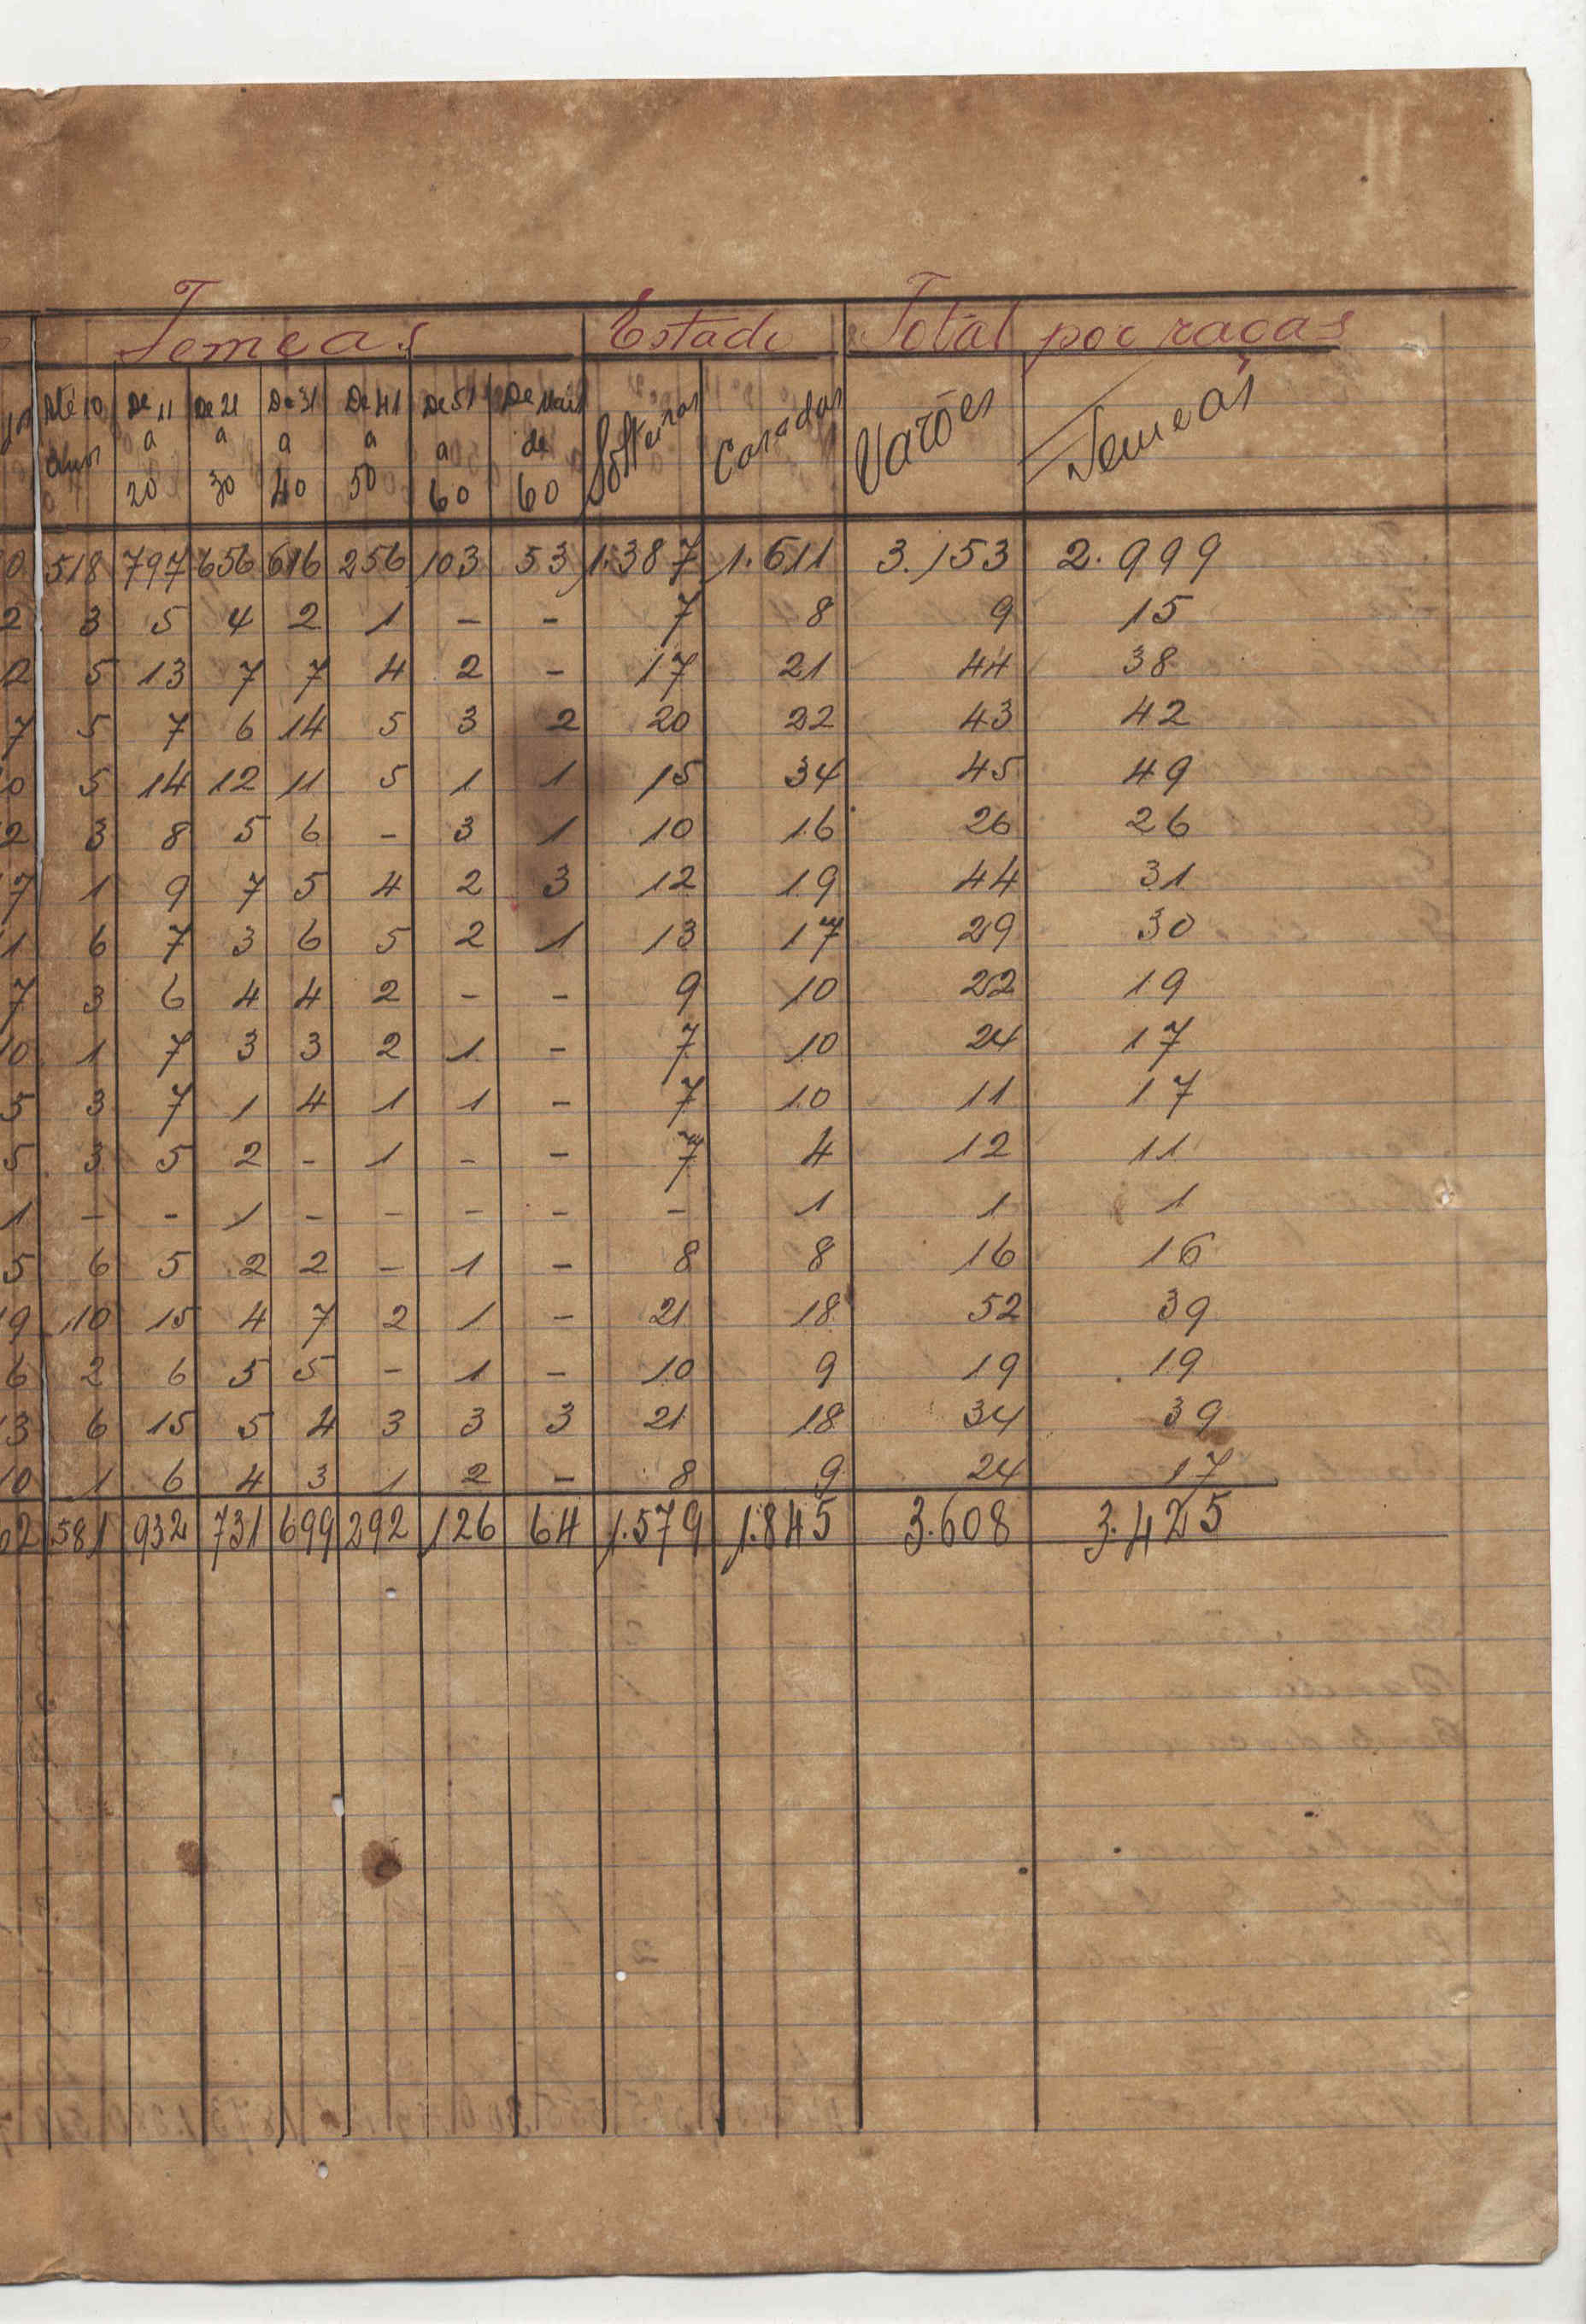 Femeas Estado Total por raças
Até 10 De 11 De 21 De 31 De 41 De 51 De mais Solteiras Casadas Varões Femeas
Anos a a a a a de
20 30 40 50 60 60
0 518 797 656 616 256 103 53 1.387 1.611 3.153 2.999
2 3 5 4 2 1 - - 7 8 9 15
2 5 13 7 7 4 2 - 17 21 44 38
7 5 7 6 14 5 3 2 20 22 43 42
0 5 14 12 11 5 1 1 15 34 45 49
2 3 8 5 6 - 3 1 10 16 26 26
7 1 9 7 5 4 2 3 12 19 44 31
1 6 7 3 6 5 2 1 13 17 29 30
7 3 6 4 4 2 - - 9 10 22 19
10 1 7 3 3 2 1 - 7 10 24 17
5 3 7 1 4 1 1 - 7 10 11 17
5 3 5 2 - 1 - - 7 4 12 11
1 - - 1 - - - - - 1 1 1
5 6 5 2 2 - 1 - 8 8 16 16
19 10 15 4 7 2 1 - 21 18 52 39
6 2 6 5 5 - 1 - 10 9 19 19
13 6 15 5 4 3 3 3 21 18 34 39
10 1 6 4 3 1 2 - 8 9 24 17
62 581 932 731 699 292 126 64 1.579 1.845 3.608 3.425